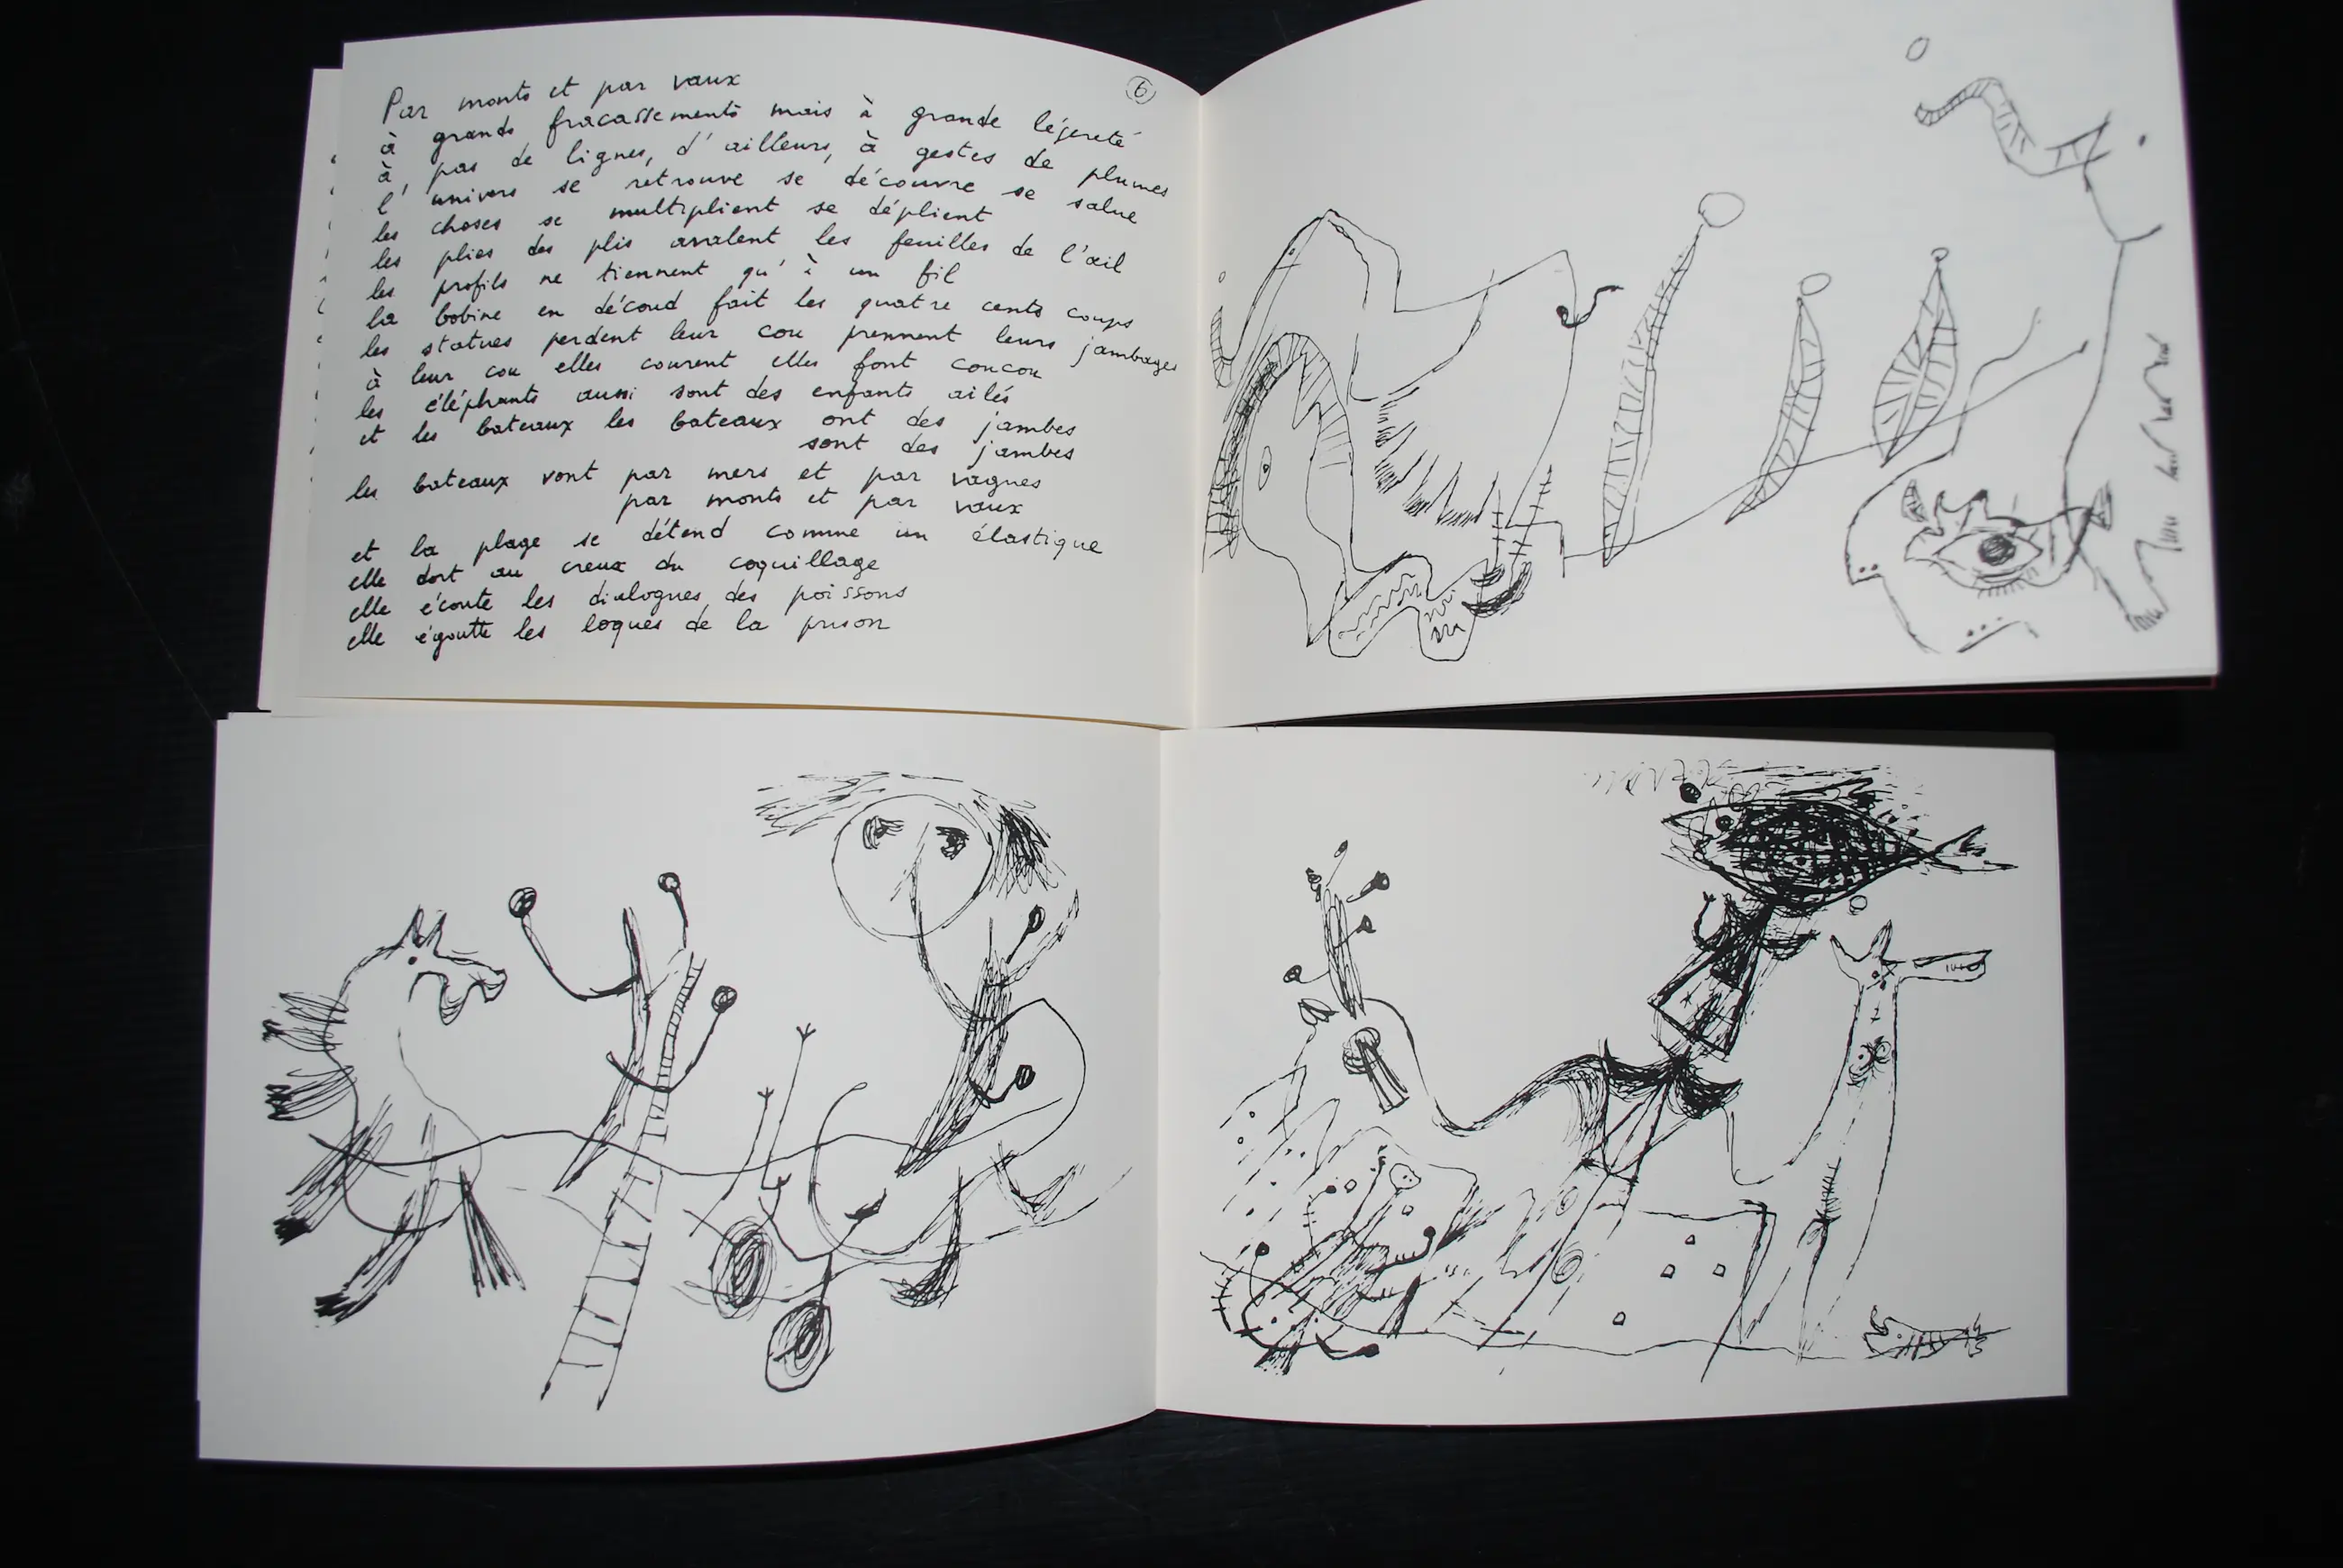 Par monts et par vaux
6
à grands fracassements mais à grande légereté
à pas de lignes, d'ailleurs, à gestes de plumes
l'univers se retrouve se découvre se salue
les choses se multiplient se déplient
les plies des plis avalent les feuilles de l'œil
les profils ne tiennent qu'à un fil
la bobine en découd fait les quatre cents coups
les statues perdent leur cou prennent leurs jambages
à leur cou elles courent elles font coucou
les éléphants aussi sont des enfants ailés
et les bateaux les bateaux ont des jambes
sont des jambes
les bateaux vont par mers et par vagues
par monts et par vaux
et la plage se détend comme un élastique
elle dort au creux du coquillage
elle écoute les dialogues des poissons
elle égoutte les loques de la prison